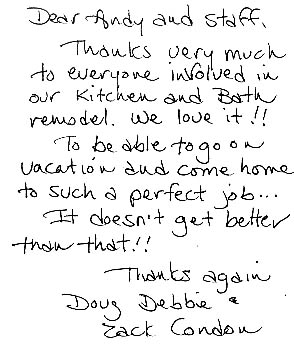 Dear Andy and staff,
Thanks very much
to everyone involved in
our Kitchen and Bath
remodel. We love it!!
To be able to go on
vacation and come home
to such a perfect job...
It doesn't get better
than that!!
Thanks again
Doug Debbie &
Zack Condon